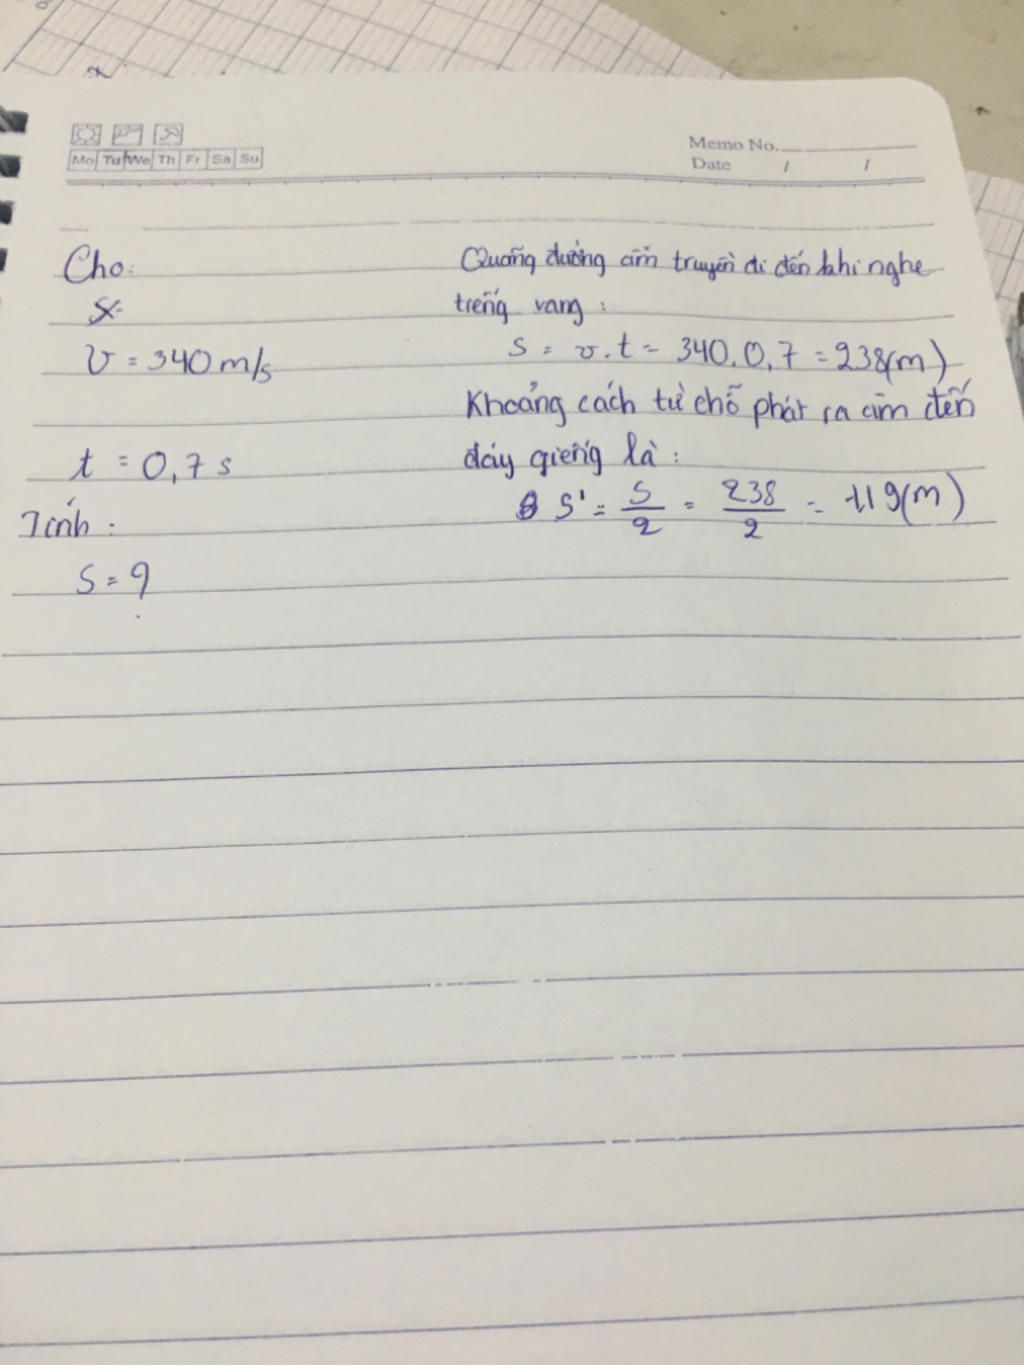 Mo Tu We Th Fr Sa Su
Memo No.
Date / /
Cho:
v = 340 m/s
t = 0,7 s
Tính:
S = ?
Quãng đường âm truyền đi đến khi nghe
tiếng vang:
s = v.t = 340.0,7 = 238(m)
Khoảng cách từ chỗ phát ra âm đến
đáy giếng là:
S' = S/2 = 238/2 = 119(m)